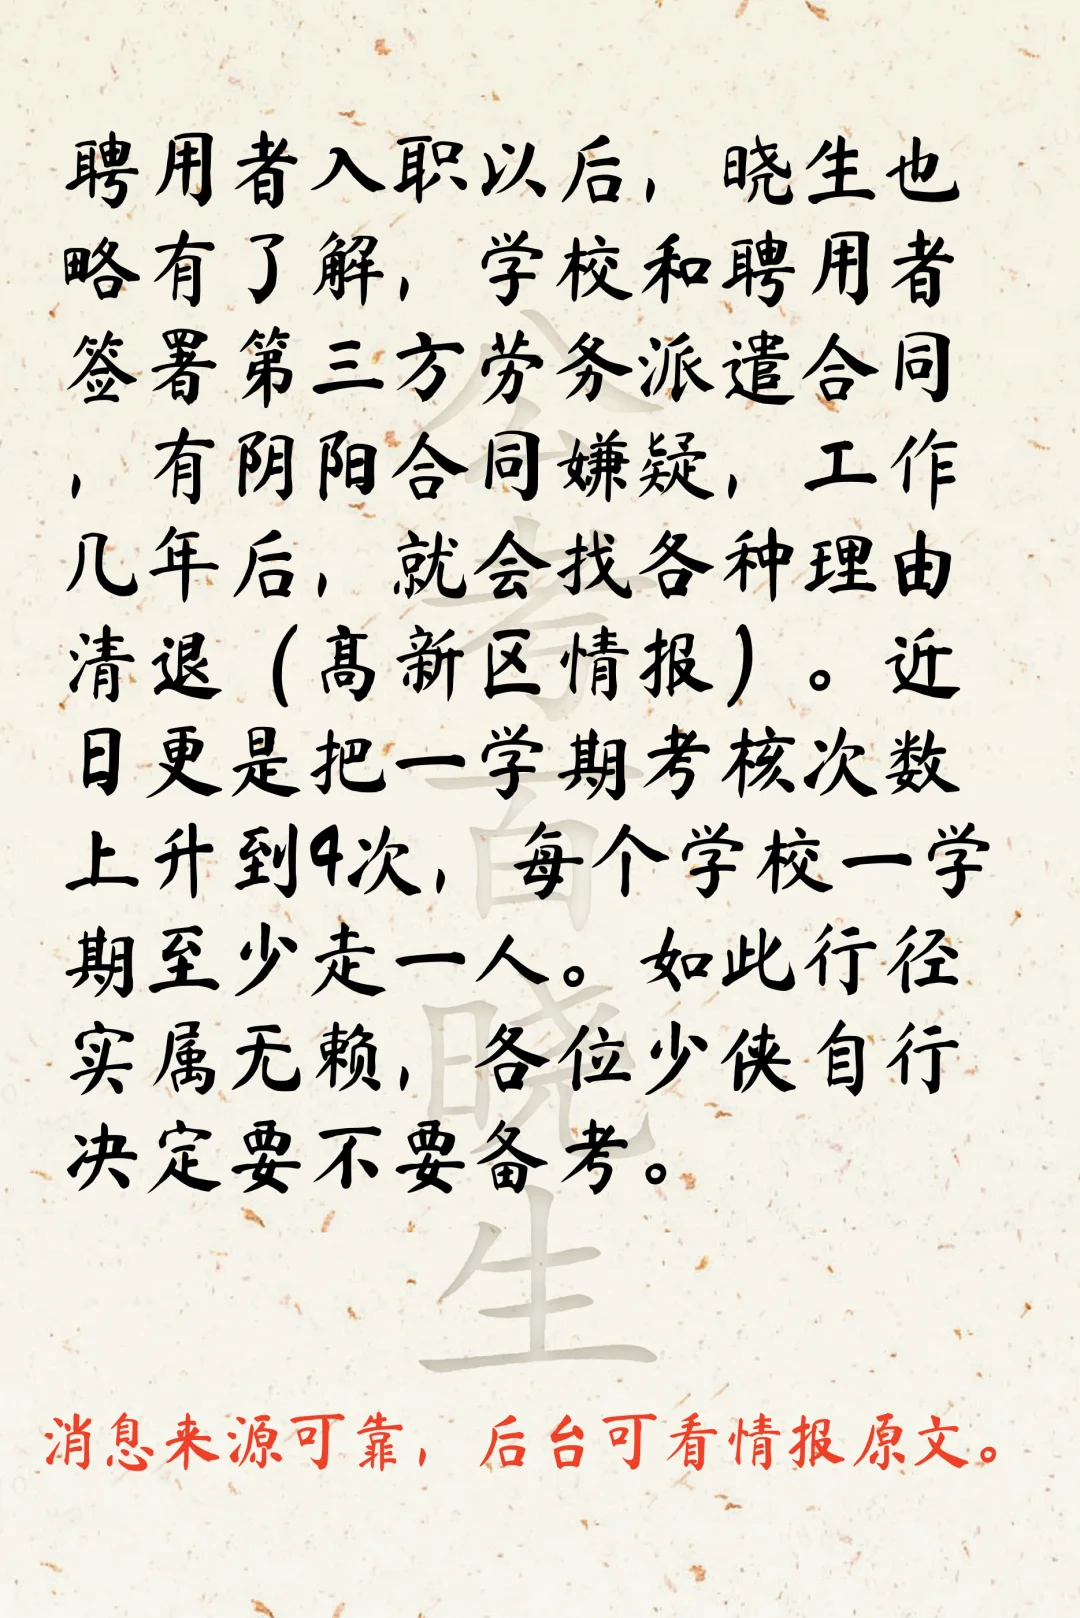 聘用者入职以后，晓生也
略有了解，学校和聘用者
签署第三方劳务派遣合同
，有阴阳合同嫌疑，工作
几年后，就会找各种理由
清退（高新区情报）。近
日更是把一学期考核次数
上升到4次，每个学校一学
期至少走一人。如此行径
实属无赖，各位少侠自行
决定要不要备考。
公考百晓生
消息来源可靠，后台可看情报原文。